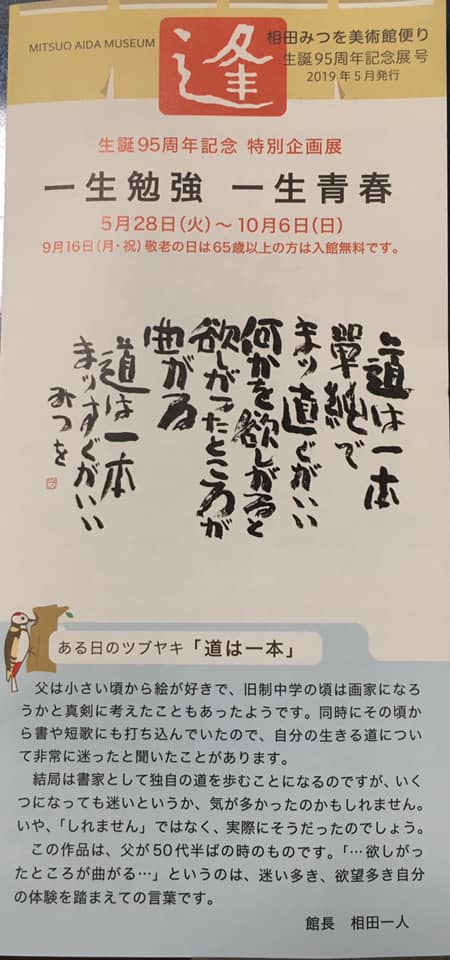 MITSUO AIDA MUSEUM
逢
相田みつを美術館便り
生誕95周年記念展号
2019年5月発行
生誕95周年記念 特別企画展
一生勉強 一生青春
5月28日(火)～10月6日(日)
9月16日(月・祝)敬老の日は65歳以上の方は入館無料です。
道は一本
單純で
まッ直ぐがいい
何かを欲しがると
欲しがったところが
曲がる
道は一本
まッすぐがいい
みつを
ある日のツブヤキ「道は一本」
父は小さい頃から絵が好きで、旧制中学の頃は画家になろ
うかと真剣に考えたこともあったようです。同時にその頃か
ら書や短歌にも打ち込んでいたので、自分の生きる道につい
て非常に迷ったと聞いたことがあります。
結局は書家として独自の道を歩むことになるのですが、いく
つになっても迷いというか、気が多かったのかもしれません。
いや、「しれません」ではなく、実際にそうだったのでしょう。
この作品は、父が50代半ばの時のものです。「…欲しがっ
たところが曲がる…」というのは、迷い多き、欲望多き自分
の体験を踏まえての言葉です。
館長 相田一人